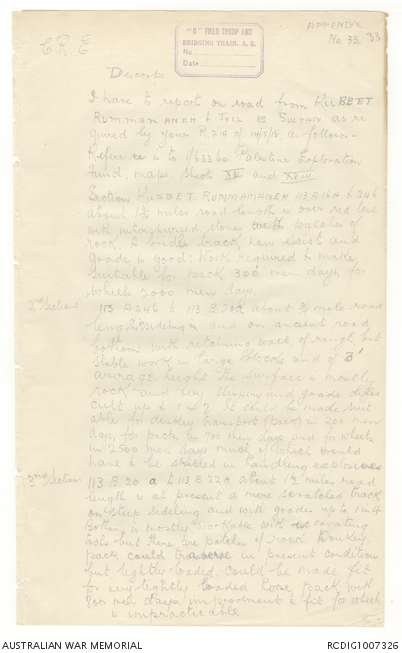 APPENDIX
No. 33. 33
C.R.E
"D" FIELD TROOP AND
BRIDGING TRAIN, A. E.
No
Date
Descorps
I have to report on road from KURBET
RUMMAMANEH to as re
quired by your R 719 of as follows:-
Reference is to 1/63360 Palestine Exploration
Fund, maps. Sheets and XVIII
Section KURBET RUMMAMANEH 113 A 16A to 24b
about 1½ miles road length is over red
with interspersed stones with patches of
rock. A bridle track here exists and
grade is good: Work required to make
suitable for pack 300 men days, for
wheels 2000 men days
2nd Section 113 A 24b to 113 B 20a about ¾ mile road
length sideling and on ancient road
bottom with retaining wall of rough but
stable work in large blocks and of 3'
average height. The surface is mostly
rock and very slippery and grade
up to 1 in 7. It could be made suit
able for donkey transport (pack) in 200 men
days for pack in 700 men days and for wheels
in 2500 men days much of which would
have to be skilled in handling explosives
3rd Section 113 B 20 a to 113 B 22a about 1½ miles road
length is at present a mere scratched track
on steep sideling and with grades up to 1 in 4
Bottom is mostly workable with excavating
tools but there are patches of rock. Donkey
pack could traverse in present condition
but lightly loaded. Could be made fit
for very lightly loaded horse pack with
800 men days improvement to fit for wheels
is impracticable